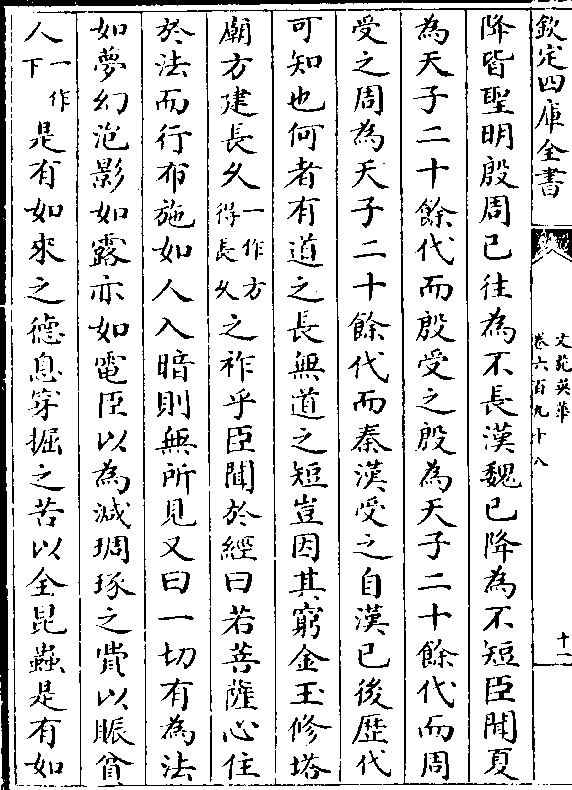 欽定四庫全書
文苑英華
卷六百九十八
十一
降皆聖明殷周已往為不長漢魏已降為不短臣聞夏
為天子二十餘代而殷受之殷為天子二十餘代而周
受之周為天子二十餘代而秦漢受之自漢已後歷代
可知也何者有道之長無道之短豈因其窮金玉修塔
廟方建長久一作方得長久之祚乎臣聞於經曰若菩薩心住
於法而行布施如人入暗則無所見又曰一切有為法
如夢幻泡影如露亦如電臣以為減琱琢之費以賑貧
人一作下是有如來之德息穿掘之苦以全昆蟲是有如